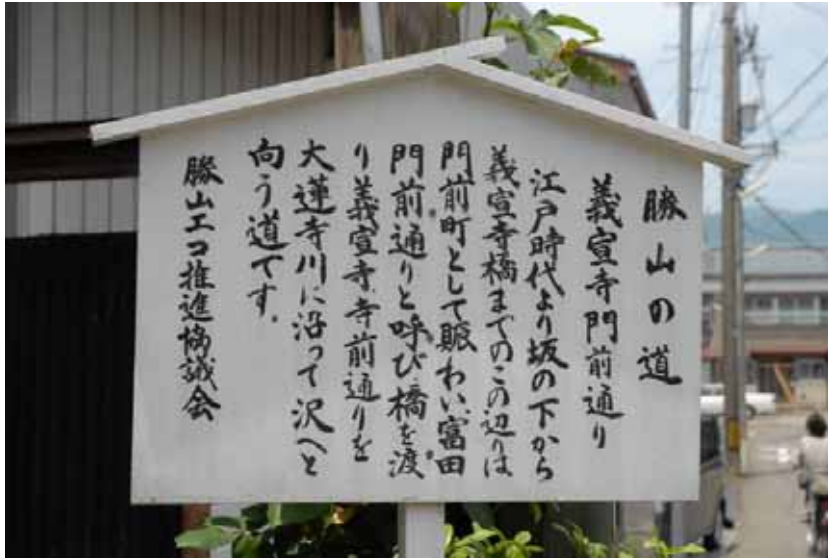 勝山の道
義宣寺門前通り
江戸時代より坂の下から
義宣寺橋までのこの辺りは
門前町として賑わい、富田
門前通りと呼び橋を渡
り義宣寺、寺前通りを
大蓮寺川に沿って沢へと
向う道です。
勝山エコ推進協議会